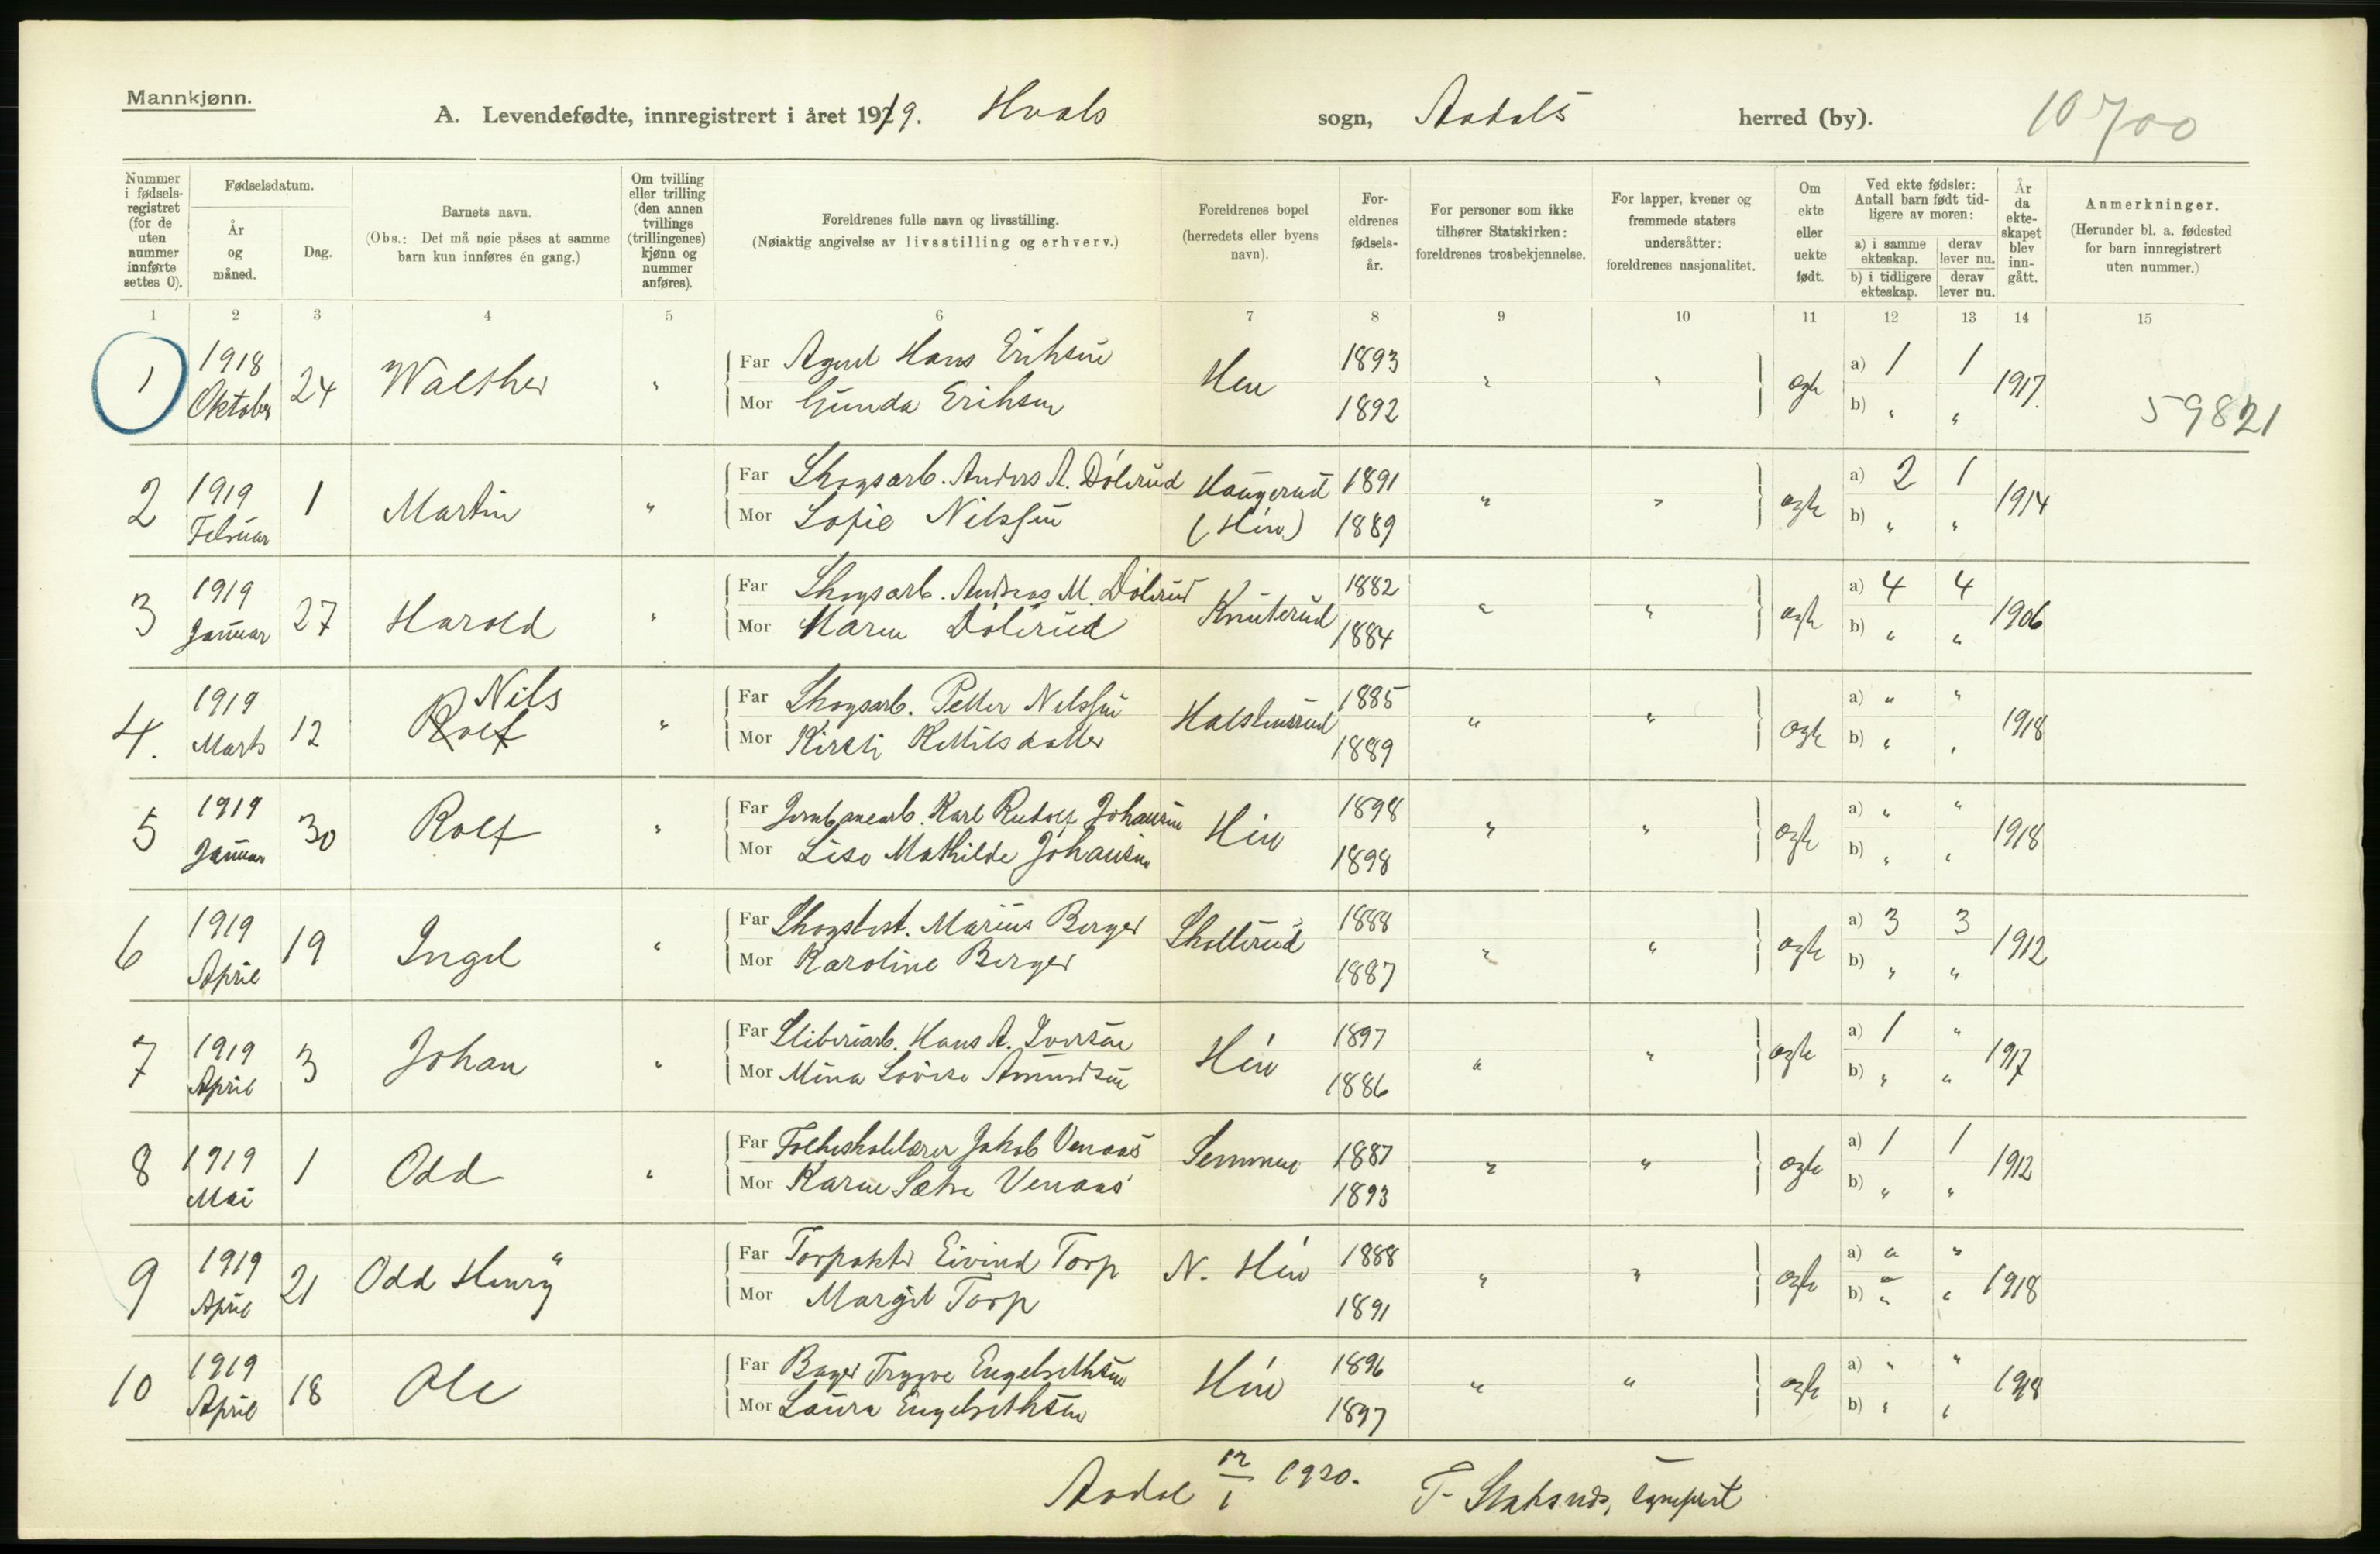 Mannkjønn.
A. Levendefødte, innregistrert i året 1919. Hvals sogn, Aadals herred (by). 10700
Nummer i fødselsregistret (for de uten nummer innførte settes 0).
Fødselsdatum.
År og måned.
Dag.
Barnets navn.
(Obs.: Det må nøie påses at samme barn kun innføres én gang.)
Om tvilling eller trilling (den annen tvillings (trillingenes) kjønn og nummer anføres).
Foreldrenes fulle navn og livsstilling.
(Nøiaktig angivelse av livsstilling og erhverv.)
Foreldrenes bopel (herredets eller byens navn).
Foreldrenes fødselsår.
For personer som ikke tilhører Statskirken: foreldrenes trosbekjennelse.
For lapper, kvener og fremmede staters undersåtter: foreldrenes nasjonalitet.
Om ekte eller uekte født.
Ved ekte fødsler: Antall barn født tidligere av moren:
a) i samme ekteskap. derav lever nu.
b) i tidligere ekteskap. derav lever nu.
År da ekteskapet blev inngått.
Anmerkninger.
(Herunder bl. a. fødested for barn innregistrert uten nummer.)
1 2 3 4 5 6 7 8 9 10 11 12 13 14 15
1 1918 Oktober 24 Walther " Far Agent Hans Eriksen Hen 1893 " " egte a) 1 1 1917.
Mor Gunda Eriksen 1892 b) " " 59821
2 1919 Februar 1 Martin " Far Skogsarb. Anders A. Dölerud Haugerud 1891 " " egte a) 2 1 1914
Mor Sofie Nilssen (Hen) 1889 b) " "
3 1919 Januar 27 Harold " Far Skogsarb. Andreas M. Dölerud Knuterud 1882 " " egte a) 4 4 1906
Mor Maren Dölerud 1884 b) " "
4. 1919 Marts 12 Rolf Nils " Far Skogsarb. Petter Nilssen 1885 " " egte a) " " 1918
Mor Kirsti Kittilsdatter 1889 b) " "
5 1919 Januar 30 Rolf " Far Jernbanearb. Karl Rudolf Johansen Hen 1898 " " egte a) " " 1918
Mor Lise Mathilde Johansen 1898 b) " "
6 1919 April 19 " Far Marius Berger 1888 " " egte a) 3 3 1912
Mor Karoline Berger 1887 b) " "
7 1919 April 3 Johan " Far Sliberiarb. Hans A. Iversen Hen 1897 " " egte a) 1 " 1917
Mor Mina Lovise Amundsen 1886 b) " "
8 1919 Mai 1 Odd " Far Folkeskolelærer Jakob Venaas Semmen 1887 " " egte a) 1 1 1912
Mor Karen Sætre Venaas 1893 b) " "
9 1919 April 21 Odd Henry " Far Eivind Torp N. Hen 1888 " " egte a) " " 1918
Mor Margit Torp 1891 b) " "
10 1919 April 18 Ole Far Bager Trygve Engebrethsen Hen 1896 " " egte a) " " 1918
Mor Laura Engebrethsen 1897 b) " "
Aadal 12/1 1920.